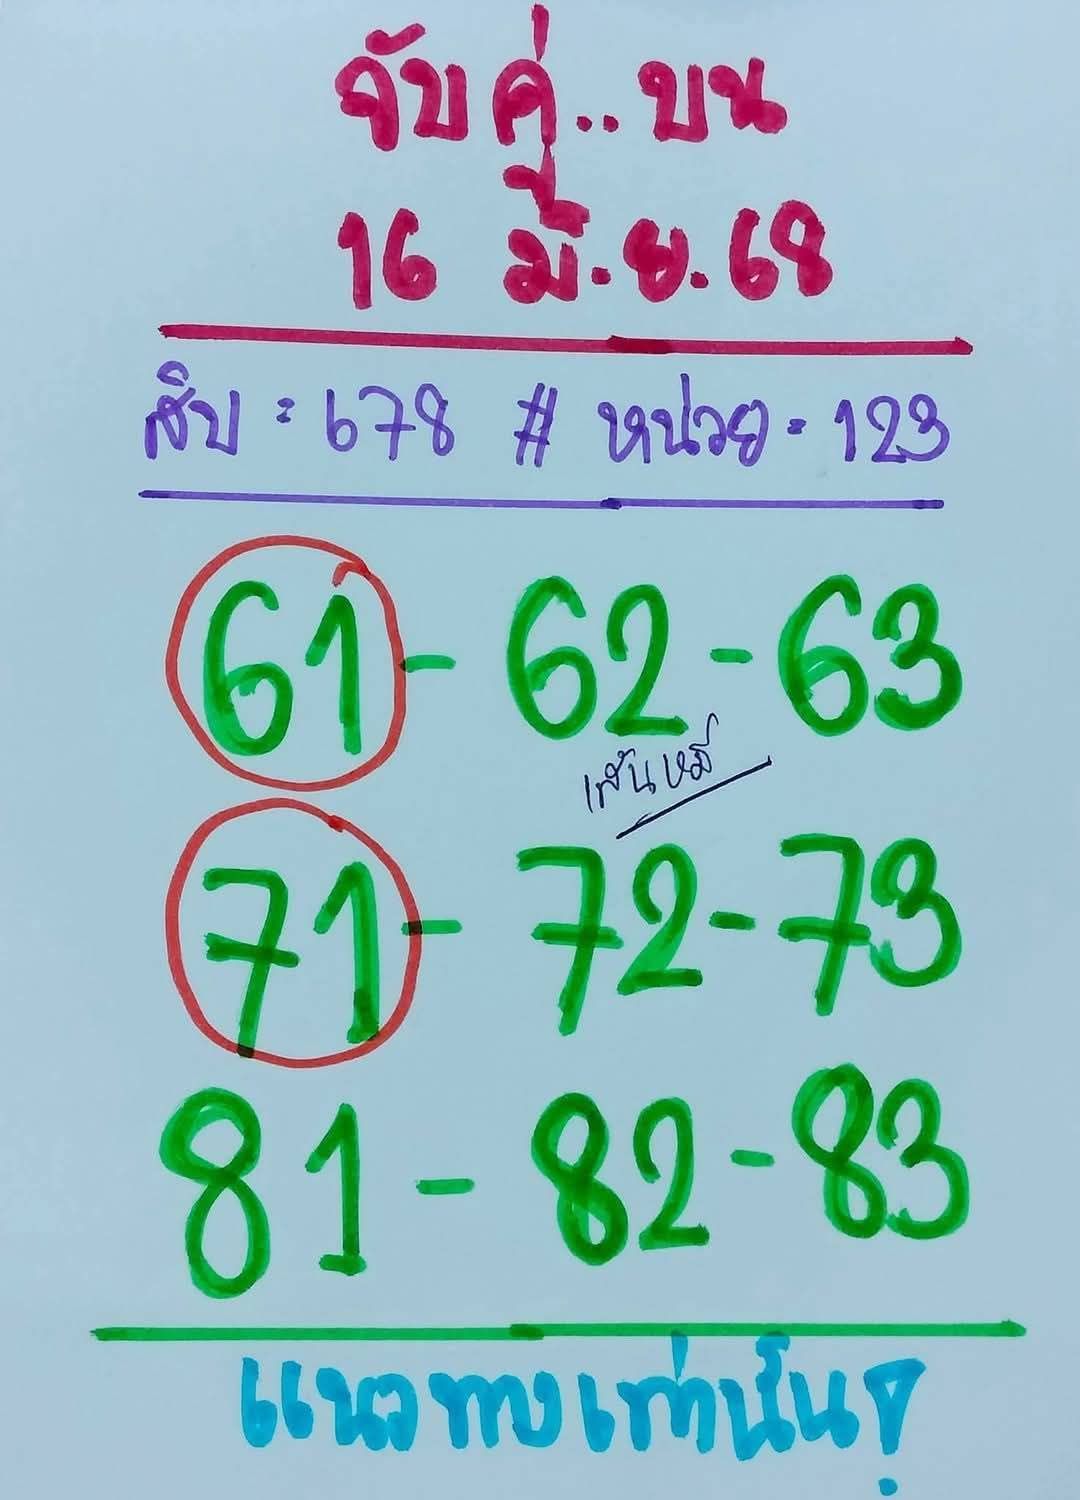 จับคู่..บน
16 มิ.ย.68
สิบ = 678 # หน่วย = 123
61 - 62 - 63
เส้นหมี่
71 - 72 - 73
81 - 82 - 83
แนวทางเท่านั้น!